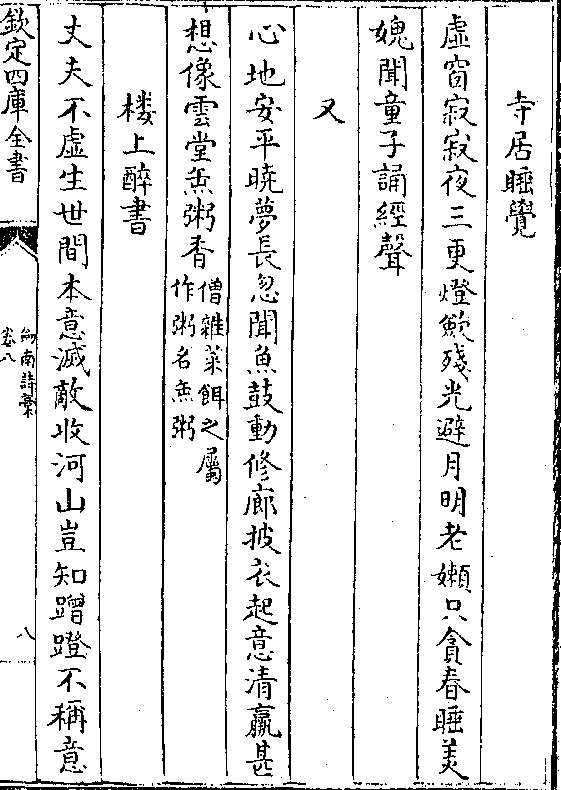 寺居睡覺
虛窗寂寂夜三更燈歛殘光避月明老嬾只貪春睡美
媿聞童子誦經聲
又
心地安平曉夢長忽聞魚鼓動修廊披衣起意清羸甚
想像雲堂缹粥香僧雜菜餌之屬
作粥名缹粥
楼上醉書
丈夫不虛生世間本意滅敵收河山豈知蹭蹬不稱意
欽定四庫全書
劍南詩藁
卷八
八